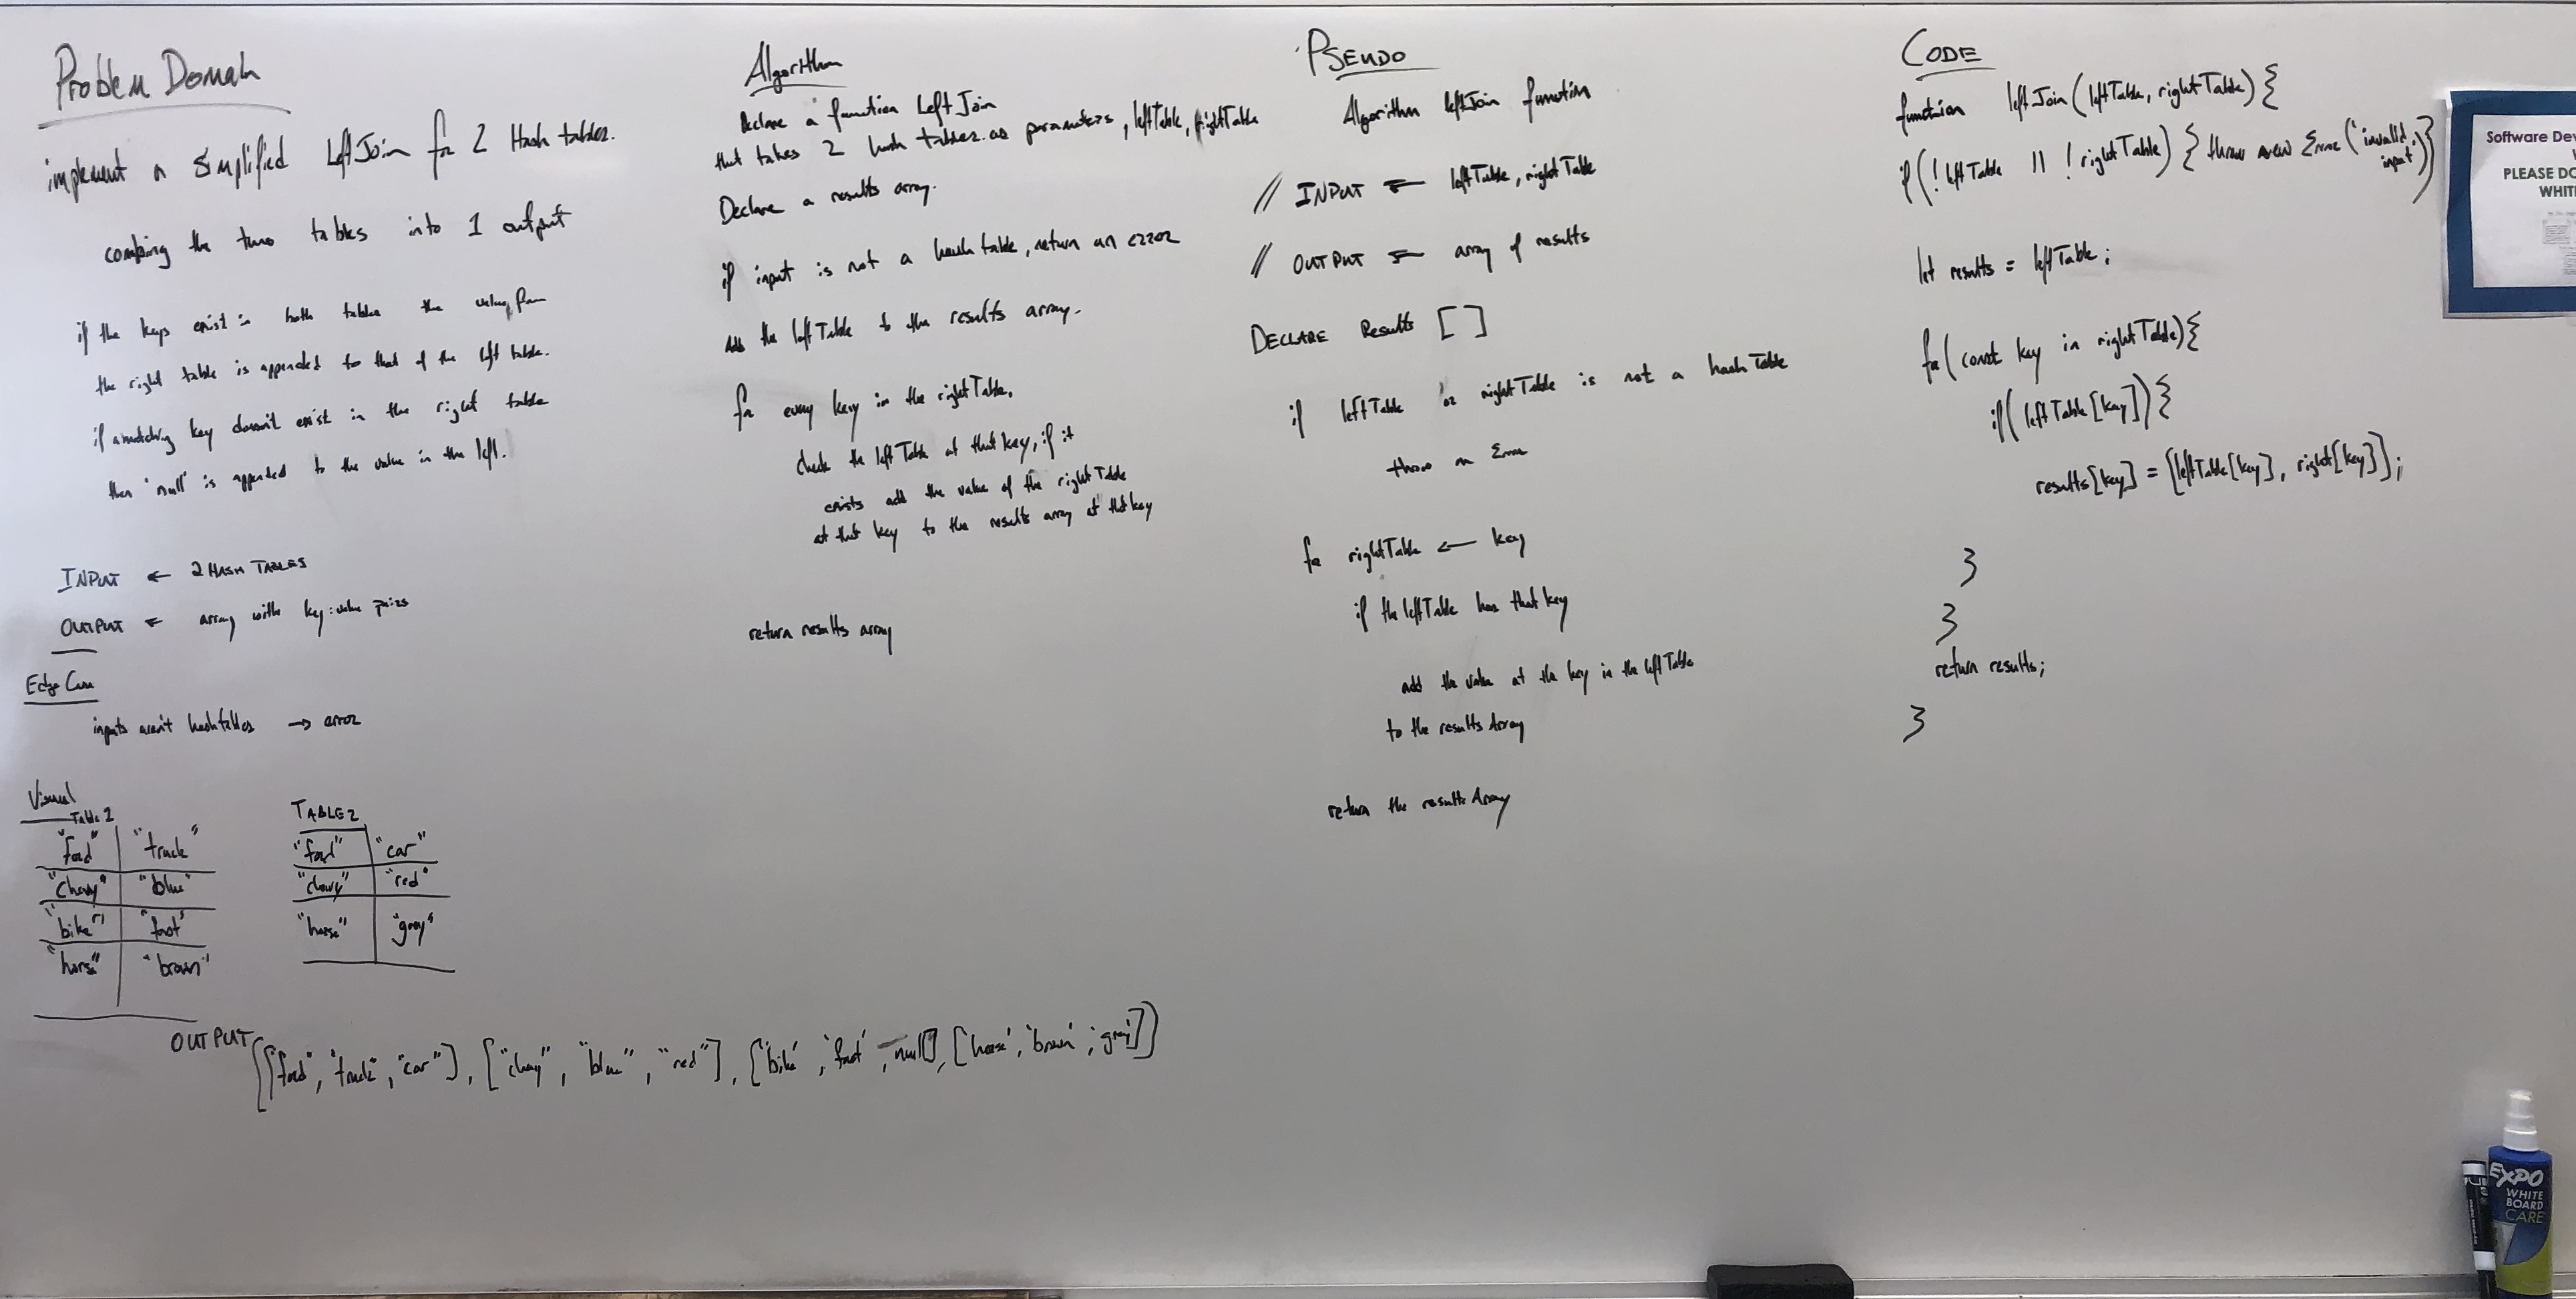 Problem Domain
implement a simplified Left Join for 2 Hash tables.
combing the two tables into 1 output
if the keys exist in both tables the value from
the right table is appended to that of the left table.
if a matching key doesn't exist in the right table
then 'null' is appended to the value in the left.
INPUT ← 2 HASH TABLES
OUTPUT ← array with key:value pairs
Edge Case
inputs aren't hashtables → error
Visual
Table 1
"ford" "truck"
"chevy" "blue"
"bike" "fast"
"horse" "brown"
TABLE 2
"ford" "car"
"chevy" "red"
"horse" "gray"
OUTPUT
[["ford", "truck", "car"], ["chevy", "blue", "red"], ['bike', 'fast', null], ['horse', 'brown', 'gray']]
Algorithm
Declare a function Left Join
that takes 2 hash tables as parameters, leftTable, rightTable
Declare a results array.
if input is not a hash table, return an error
Add the leftTable to the results array.
for every key in the rightTable,
check the leftTable at that key, if it
exists add the value of the rightTable
at that key to the results array at that key
return results array
PSEUDO
Algorithm leftJoin function
// INPUT ← leftTable, rightTable
// OUTPUT ← array of results
DECLARE Results []
if leftTable or rightTable is not a hashTable
throw an Error
for rightTable ← key
if the leftTable has that key
add the value at the key in the leftTable
to the results Array
return the results Array
CODE
function leftJoin(leftTable, rightTable){
if(!leftTable || !rightTable){ throw new Error('invalid
input')}
let results = leftTable;
for(const key in rightTable){
if(leftTable[key]){
results[key] = [leftTable[key], right[key]];
}
}
return results;
}
Software Dev
PLEASE DO
WHIT
EXPO
WHITE
BOARD
CARE